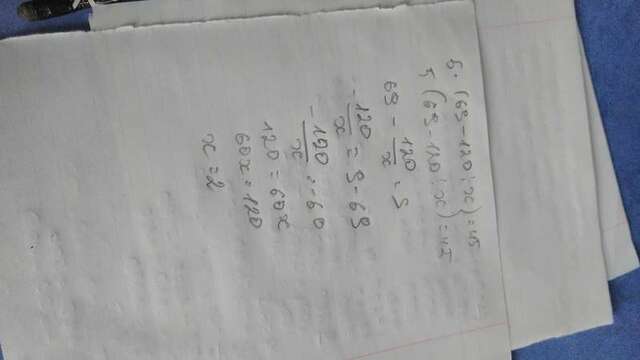 5·(69-120:x)=45
5(69-120:x)=45
69 - 120/x = 9
- 120/x = 9-69
- 120/x = -60
120=60x
60x=120
x=2